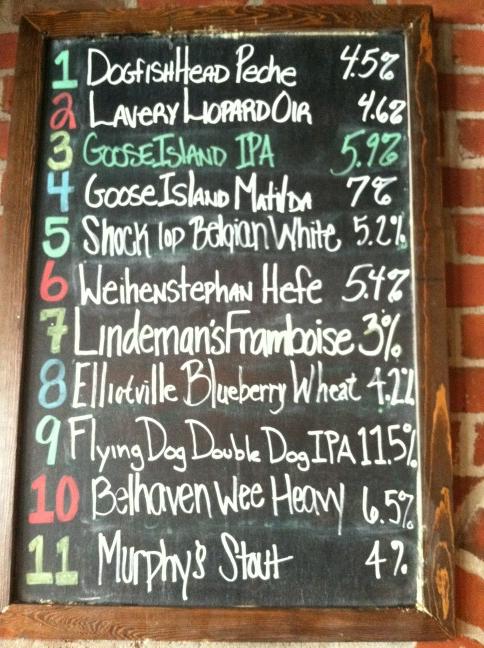 1 DogfishHead Peche 4.5%
2 Lavery Liopard Oir 4.6%
3 Goose Island IPA 5.9%
4 Goose Island Matilda 7%
5 Shock Top Belgian White 5.2%
6 Weihenstephan Hefe 5.4%
7 Lindeman's Framboise 3%
8 Elliotville Blueberry Wheat 4.2%
9 Flying Dog Double Dog IPA 11.5%
10 Belhaven Wee Heavy 6.5%
11 Murphy's Stout 4%